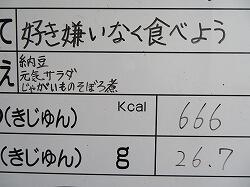 て 好き嫌いなく食べよう
え 納豆
元気サラダ
じゃがいものそぼろ煮
(きじゅん) Kcal 666
(きじゅん) g 26.7